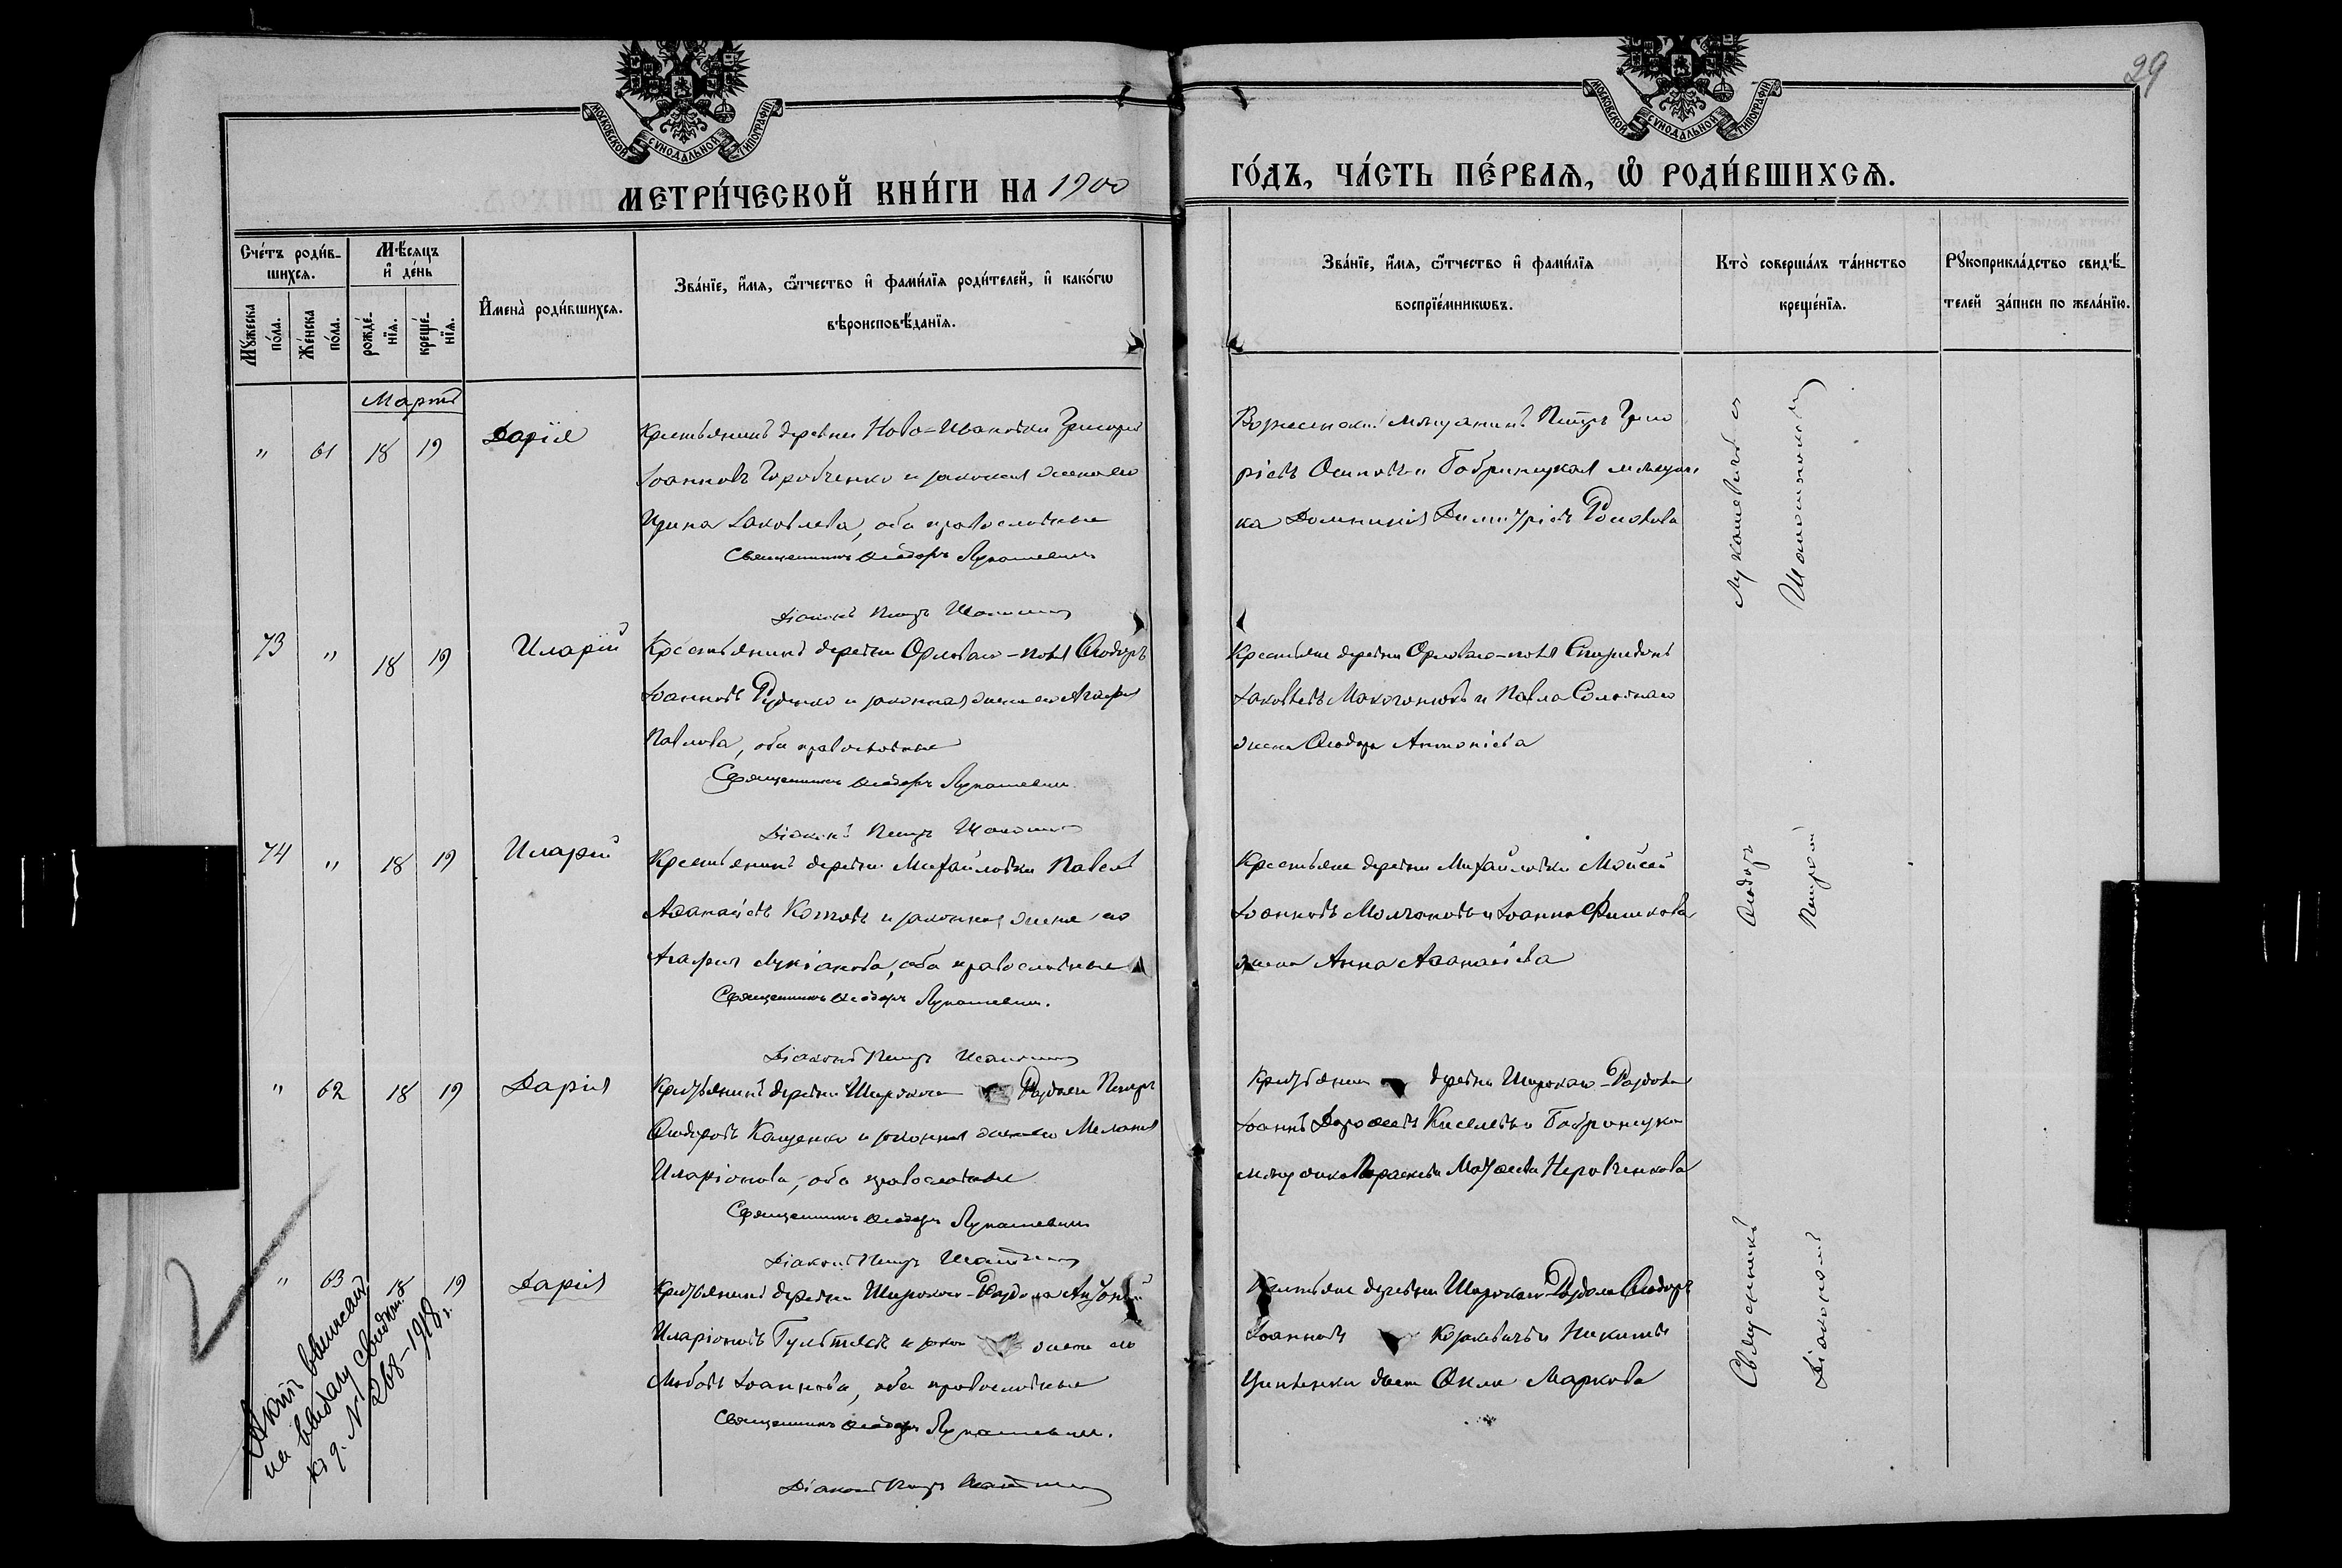 29
МОСКОВСКОЙ СУНОДАЛЬНОЙ ТИПОГРАФІИ
МОСКОВСКОЙ СУНОДАЛЬНОЙ ТИПОГРАФІИ
МЕТРИ́ЧЕСКОЙ КНИ́ГИ НА 1900
ГО́ДЪ, ЧА́СТЬ ПЕ́РВАѦ, Ѽ РОДИ́ВШИХСѦ.
Сче́тъ роди́в-
шихсѧ.
Мꙋ́жеска по́ла.
Же́нска по́ла.
Мѣ́сѧцъ и҆ де́нь
рожде́-
нїѧ.
креще́-
нїѧ.
И҆мена̀ роди́вшихсѧ.
Зва́нїе, и҆́мѧ, ѻ҆́тчество и҆ фами́лїѧ роди́телей, и҆ како́гѡ
вѣроисповѣ́данїѧ.
Зва́нїе, и҆́мѧ, ѻ҆́тчество и҆ фами́лїѧ
воспрїе́мникѡвъ.
Кто̀ соверша́лъ та́инство
креще́нїѧ.
Рꙋкоприкла́дство свидѣ́-
телей за́писи по жела́нїю.
Мартъ
" 61 18 19 Дарія
Крестьянинъ деревни Ново-Ивановки Григорій
Іоанновъ Горобченко и законная жена его
Ирина Іаковлева, оба православные
Священникъ Ѳеодоръ Лукашевичъ
Діаконъ Петръ
Вознесенскій мѣщанинъ Петръ Григо
ріевъ Осиповъ и Бобринецкая мѣщан
ка Домникія Димитріева
73 " 18 19 Иларій
Крестьянинъ деревни Орлова-поля Ѳеодоръ
Іоанновъ Руденко и законная жена его Агафія
Павлова, оба православные
Священникъ Ѳеодоръ Лукашевичъ
Діаконъ Петръ
Крестьяне деревни Орлова-поля Спиридонъ
Іаковлевъ Макогоновъ и Павла
жена Ѳеодора Антоніева
74 " 18 19 Иларій
Крестьянинъ деревни Михайловки Павелъ
Аѳанасіевъ Котовъ и законная жена его
Агафія Лукіанова, оба православные
Священникъ Ѳеодоръ Лукашевичъ.
Діаконъ Петръ
Крестьяне деревни Михайловки Моисей
Іоанновъ Молчановъ и Іоанна Фишкова
жена Анна Аѳанасіева
" 62 18 19 Дарія
Крестьянинъ деревни Широкаго Раздола Петръ
Ѳеодоровъ Кащенко и законная жена его Меланія
Иларіонова, оба православные
Священникъ Ѳеодоръ Лукашевичъ
Діаконъ Петръ
Крестьянинъ деревни Широкаго-Раздола
Іоаннъ Дороѳеевъ Киселевъ и Бобринецкая
мѣщанка Параскева
" 63 18 19 Дарія
Крестьянинъ деревни Широкаго-Раздола Антоній
Иларіоновъ и жена его
Любовь Іоаннова, оба православные
Священникъ Ѳеодоръ Лукашевичъ.
Діаконъ Петръ
Крестьяне деревни Широкаго Раздола Ѳеодоръ
Іоанновъ и Никиты
жена Ѳекла Маркова
Священникъ Ѳеодоръ Лукашевичъ съ
Діакономъ Петромъ
Актъ выписанъ
на выдачу свидѣт.
къ д. № 268-1918 г.